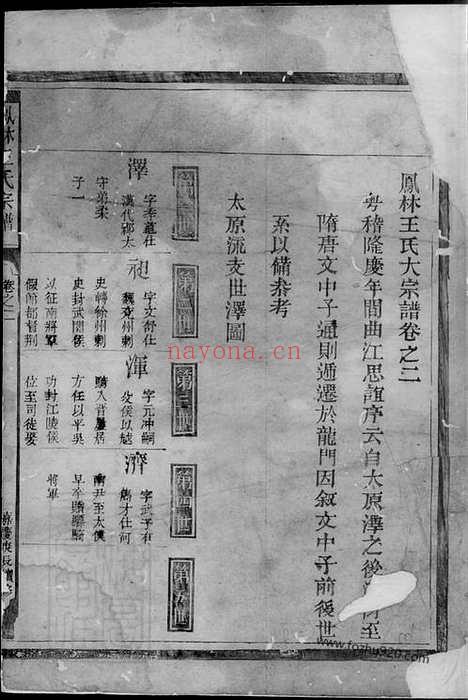 鳳林王氏大宗譜卷之二
稽隆慶年間曲江思誼序云自太原澤之後
至
隋唐文中子通則通遷於龍門因叙文中子前後世
系以備叅考
太原流支世澤圖
第一世
第二世
第三世
第四世
第五世
澤
字季道仕
漢代郡太
守弟柔
子一
昶
字文舒仕
魏兗州刺
史轉徐州刺
史封武關侯
以征南將軍
假節都督荆
渾
字元冲嗣
父侯以
方任以平吳
功封江陵侯
位至司徒
濟
字武子有
儁才仕河
南尹至太僕
早卒贈驃騎
將軍
鳳林王氏宗譜
卷之二
nayona.cn
www.fozhu920.com